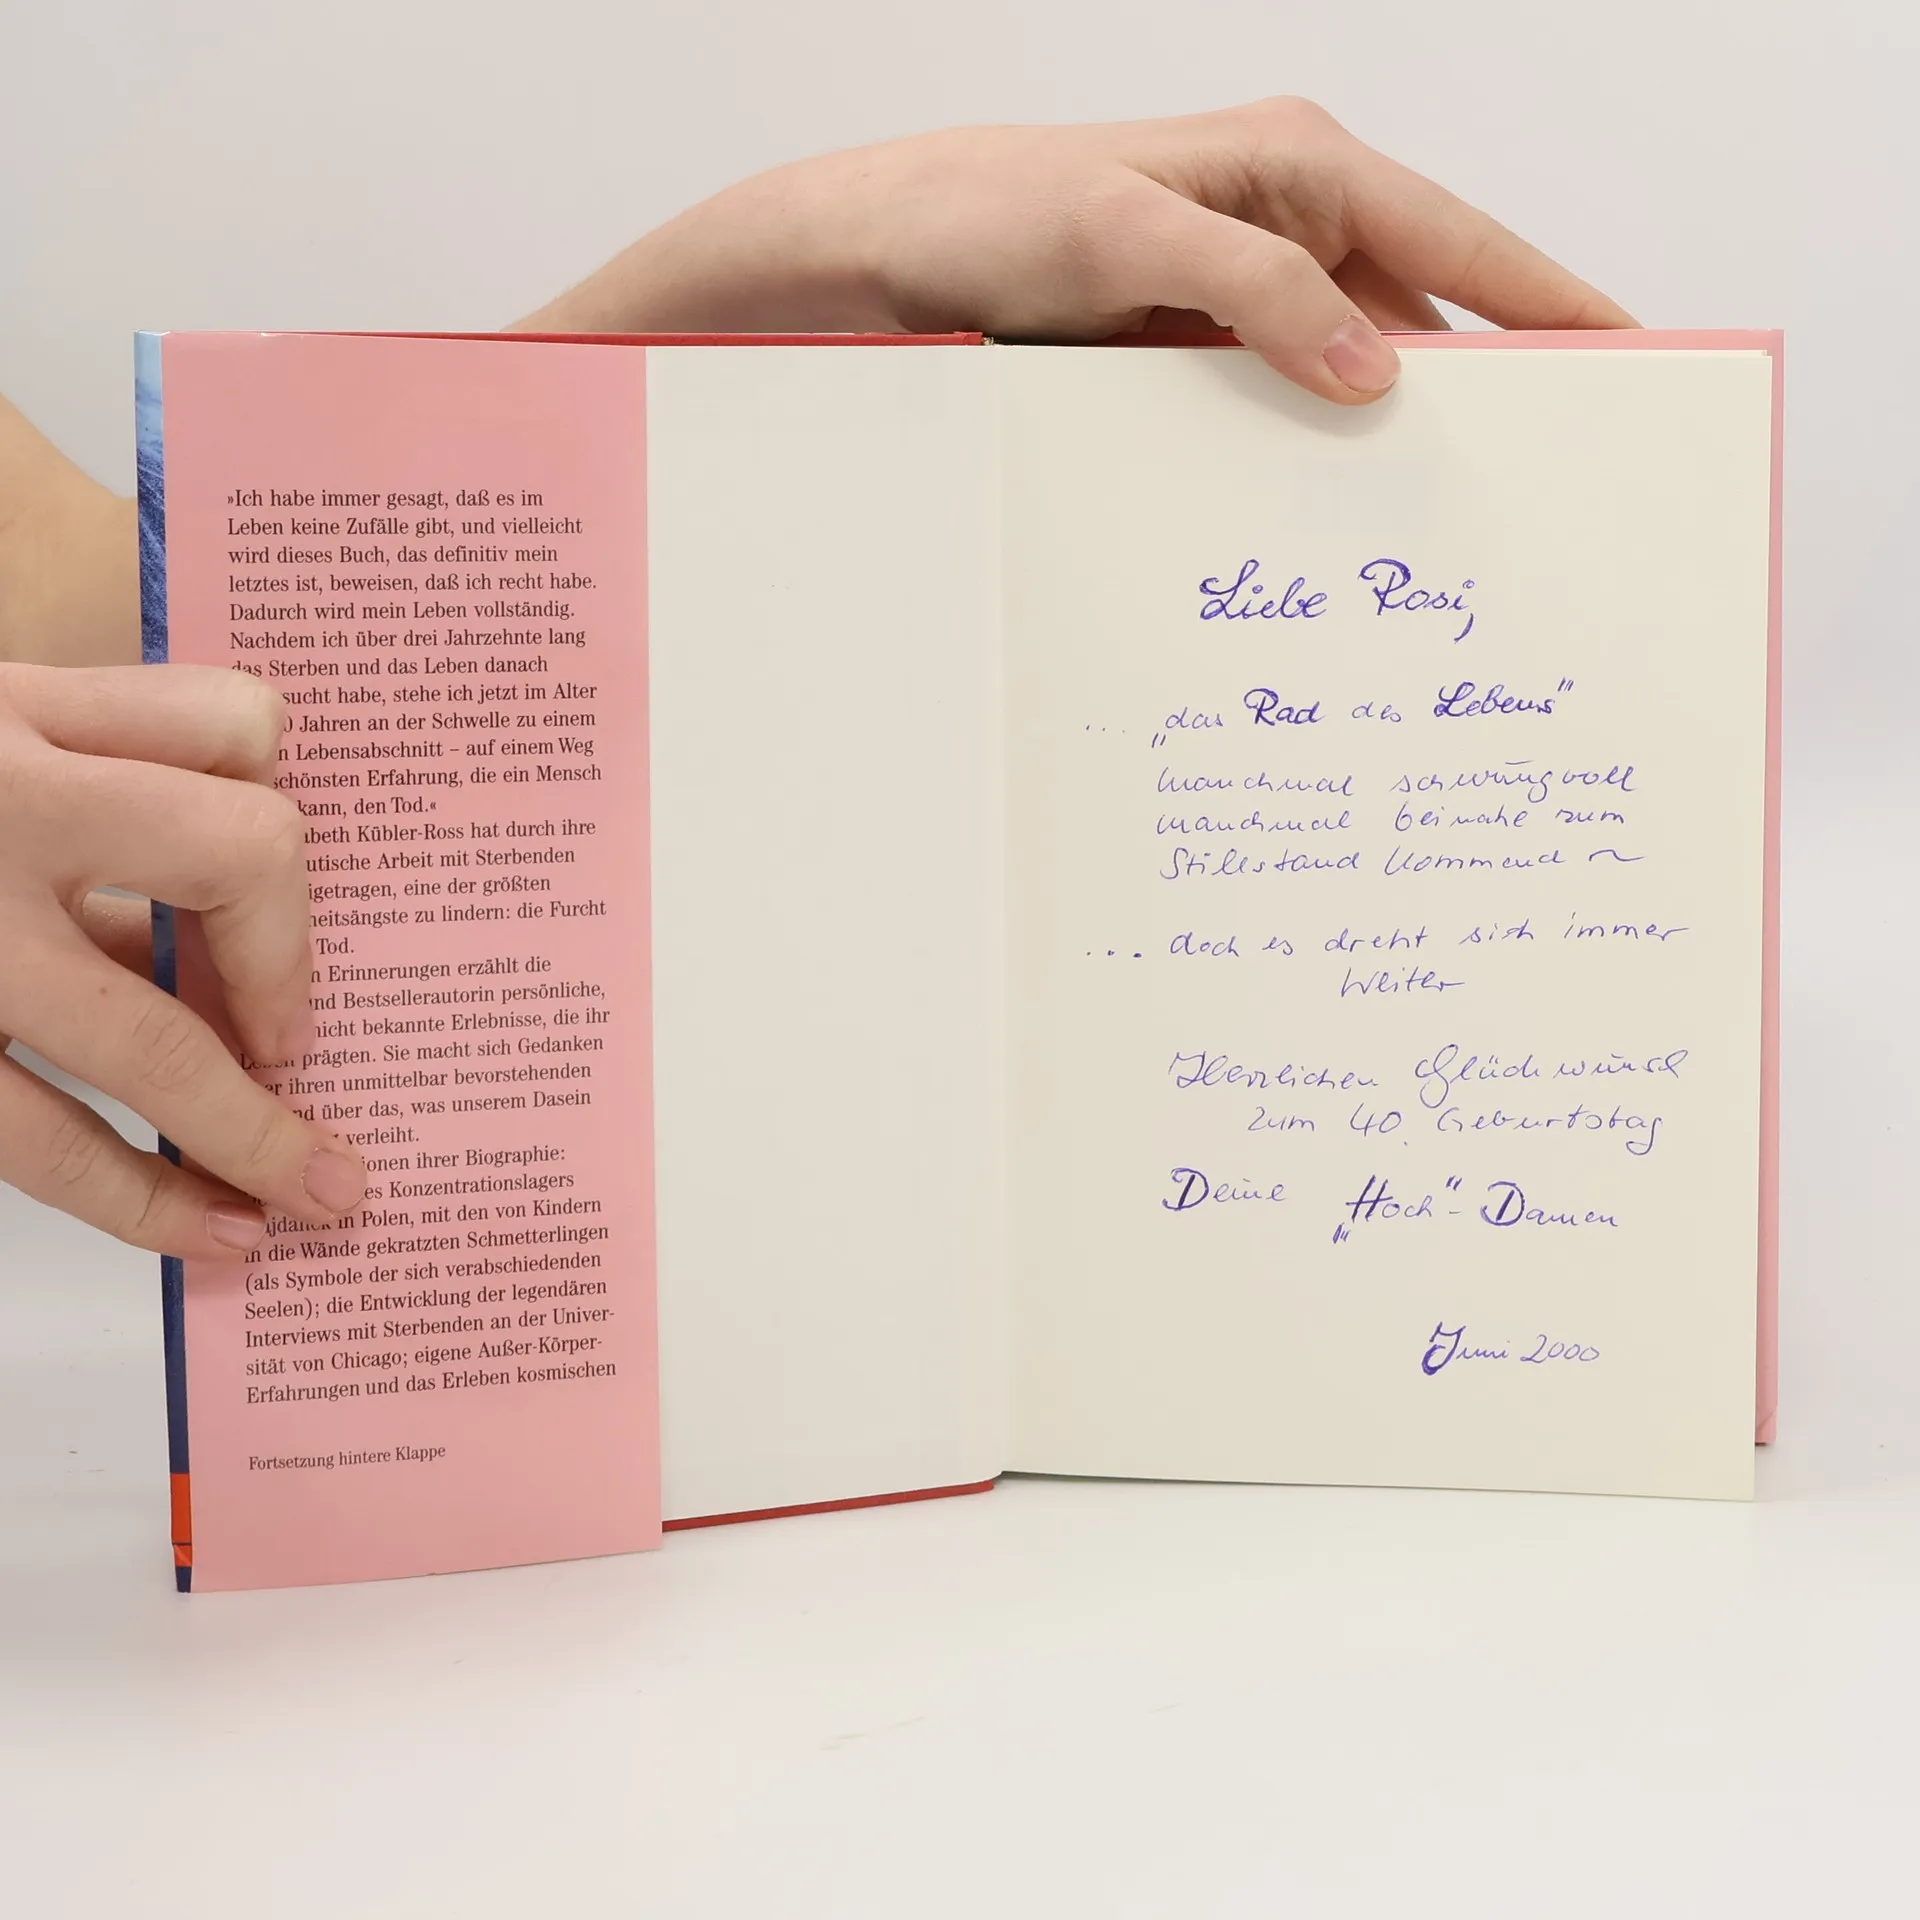 »Ich habe immer gesagt, daß es im
Leben keine Zufälle gibt, und vielleicht
wird dieses Buch, das definitiv mein
letztes ist, beweisen, daß ich recht habe.
Dadurch wird mein Leben vollständig.
Nachdem ich über drei Jahrzehnte lang
das Sterben und das Leben danach
sucht habe, stehe ich jetzt im Alter
0 Jahren an der Schwelle zu einem
n Lebensabschnitt – auf einem Weg
schönsten Erfahrung, die ein Mensch
kann, den Tod.«
abeth Kübler-Ross hat durch ihre
utische Arbeit mit Sterbenden
igetragen, eine der größten
heitsängste zu lindern: die Furcht
Tod.
n Erinnerungen erzählt die
und Bestsellerautorin persönliche,
nicht bekannte Erlebnisse, die ihr
Leben prägten. Sie macht sich Gedanken
er ihren unmittelbar bevorstehenden
nd über das, was unserem Dasein
verleiht.
ionen ihrer Biographie:
es Konzentrationslagers
ajdanek in Polen, mit den von Kindern
in die Wände gekratzten Schmetterlingen
(als Symbole der sich verabschiedenden
Seelen); die Entwicklung der legendären
Interviews mit Sterbenden an der Univer-
sität von Chicago; eigene Außer-Körper-
Erfahrungen und das Erleben kosmischen
Fortsetzung hintere Klappe
Liebe Rosi,
... „das Rad des Lebens"
manchmal schwungvoll
manchmal beinahe zum
Stillstand kommend ~
... doch es dreht sich immer
weiter
Herzlichen Glückwunsch
zum 40. Geburtstag
Deine „Hoch"-Damen
Juni 2000